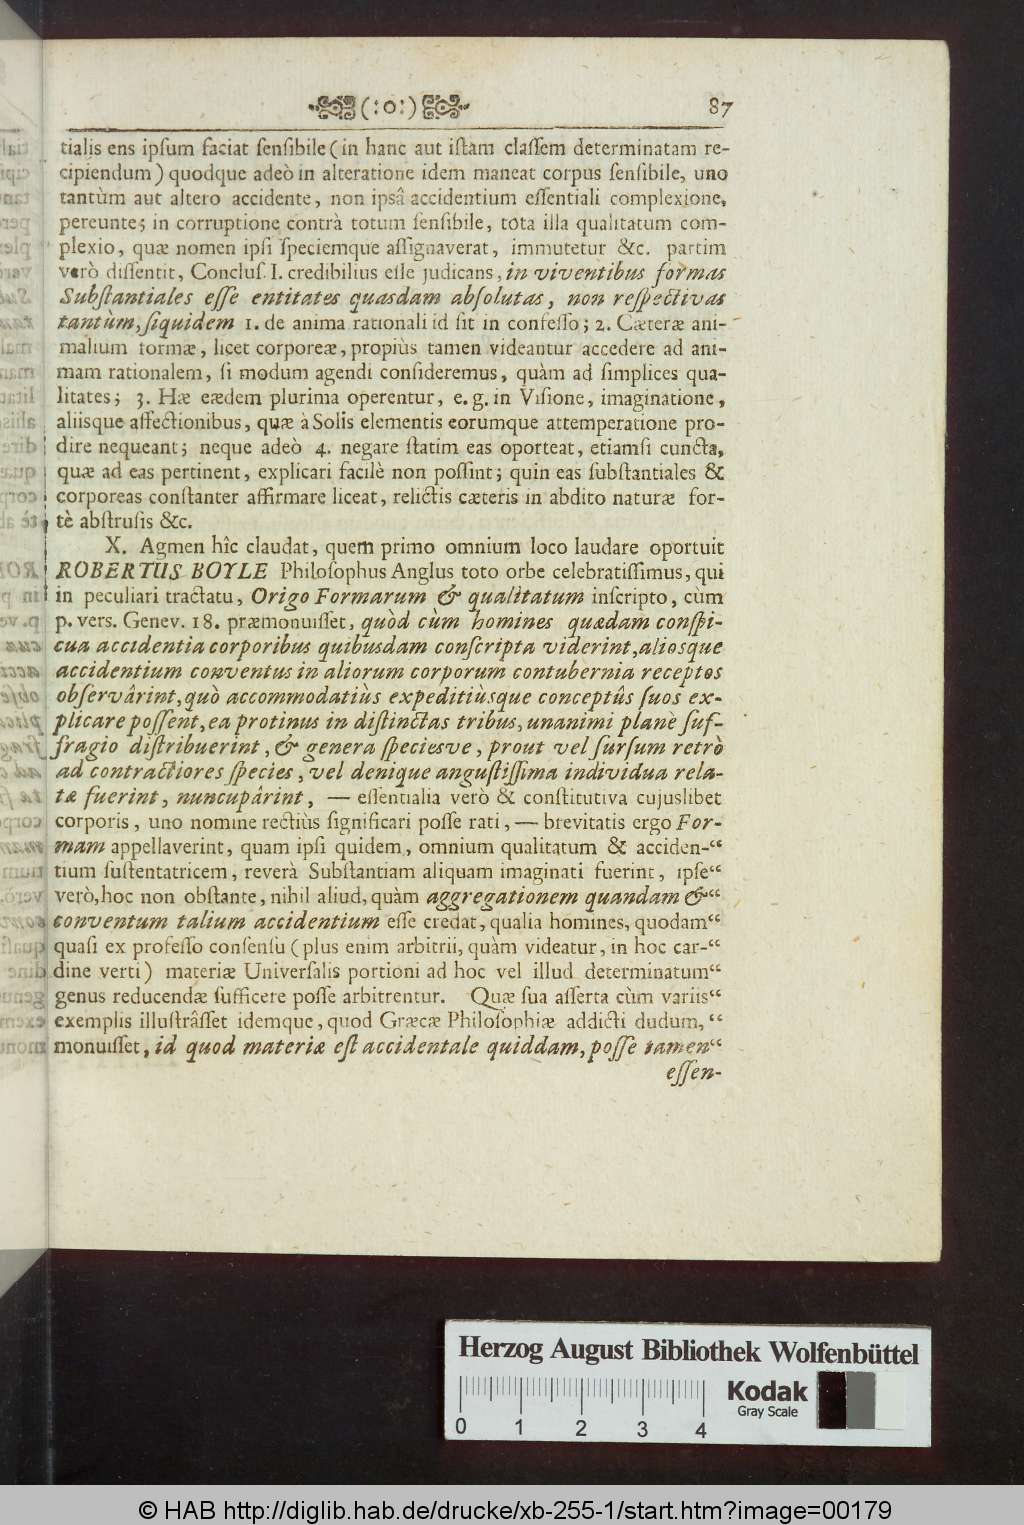 (:o:) 87
tialis ens ipſum faciat ſenſibile (in hanc aut iſtam claſſem determinatam re-
cipiendum) quodque adeò in alteratione idem maneat corpus ſenſibile, uno
tantùm aut altero accidente, non ipsâ accidentium eſſentiali complexione,
pereunte; in corruptione contrà totum ſenſibile, tota illa qualitatum com-
plexio, quæ nomen ipſi ſpeciemque aſſignaverat, immutetur &c. partim
verò diſſentit, Concluſ. I. credibilius eſſe judicans, in viventibus formas
Subſtantiales eſſe entitates quasdam abſolutas, non reſpectivas
tantùm, ſiquidem 1. de anima rationali id ſit in confeſſo; 2. Cæteræ ani-
malium formæ, licet corporeæ, propiùs tamen videantur accedere ad ani-
mam rationalem, ſi modum agendi conſideremus, quàm ad ſimplices qua-
litates; 3. Hæ eædem plurima operentur, e. g. in Viſione, imaginatione,
aliisque affectionibus, quæ à Solis elementis eorumque attemperatione pro-
dire nequeant; neque adeò 4. negare ſtatim eas oporteat, etiamſi cuncta,
quæ ad eas pertinent, explicari facilè non poſſint; quin eas ſubſtantiales &
corporeas conſtanter affirmare liceat, relictis cæteris in abdito naturæ for-
tè abſtruſis &c.
X. Agmen hîc claudat, quem primo omnium loco laudare oportuit
ROBERTUS BOYLE Philoſophus Anglus toto orbe celebratiſſimus, qui
in peculiari tractatu, Origo Formarum & qualitatum inſcripto, cùm
p. verſ. Genev. 18. præmonuiſſet, quòd cùm homines quædam conſpi-
cua accidentia corporibus quibusdam conſcripta viderint, aliosque
accidentium conventus in aliorum corporum contubernia receptos
obſervârint, quò accommodatiùs expeditiùsque conceptûs ſuos ex-
plicare poſſent, ea protinus in diſtinctas tribus, unanimi planè ſuf-
fragio diſtribuerint, & genera ſpeciesve, prout vel ſurſum retrò
ad contractiores ſpecies, vel denique anguſtiſſima individua rela-
ta fuerint, nuncupârint, — eſſentialia verò & conſtitutiva cujuslibet
corporis, uno nomine rectiùs ſignificari poſſe rati, — brevitatis ergo For-
mam appellaverint, quam ipſi quidem, omnium qualitatum & acciden-“
tium ſuſtentatricem, reverà Subſtantiam aliquam imaginati fuerint, ipſe“
verò, hoc non obſtante, nihil aliud, quàm aggregationem quandam &“
conventum talium accidentium eſſe credat, qualia homines, quodam“
quaſi ex profeſſo conſenſu (plus enim arbitrii, quàm videatur, in hoc car-“
dine verti) materiæ Univerſalis portioni ad hoc vel illud determinatum“
genus reducendæ ſufficere poſſe arbitrentur. Quæ ſua aſſerta cùm variis“
exemplis illuſtrâſſet idemque, quod Græcæ Philoſophiæ addicti dudum,“
monuiſſet, id quod materiæ eſt accidentale quiddam, poſſe tamen“
eſſen-
Herzog August Bibliothek Wolfenbüttel
0 1 2 3 4
Kodak
Gray Scale
© HAB http://diglib.hab.de/drucke/xb-255-1/start.htm?image=00179